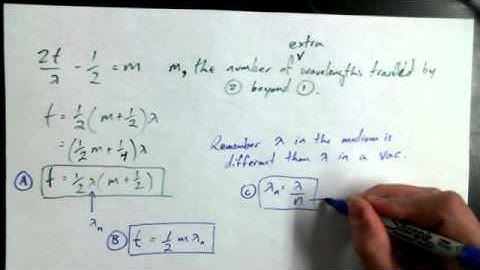 2t/λ - 1/2 = m
m, the number of extra wavelengths travelled by ② beyond ①.
t = 1/2 (m + 1/2) λ
= (1/2 m + 1/4) λ
Ⓐ t = 1/2 λ (m + 1/2)
λn
Ⓑ t = 1/2 m λn
Remember λ in the medium is
different than λ in a vac.
Ⓒ λn = λ/n